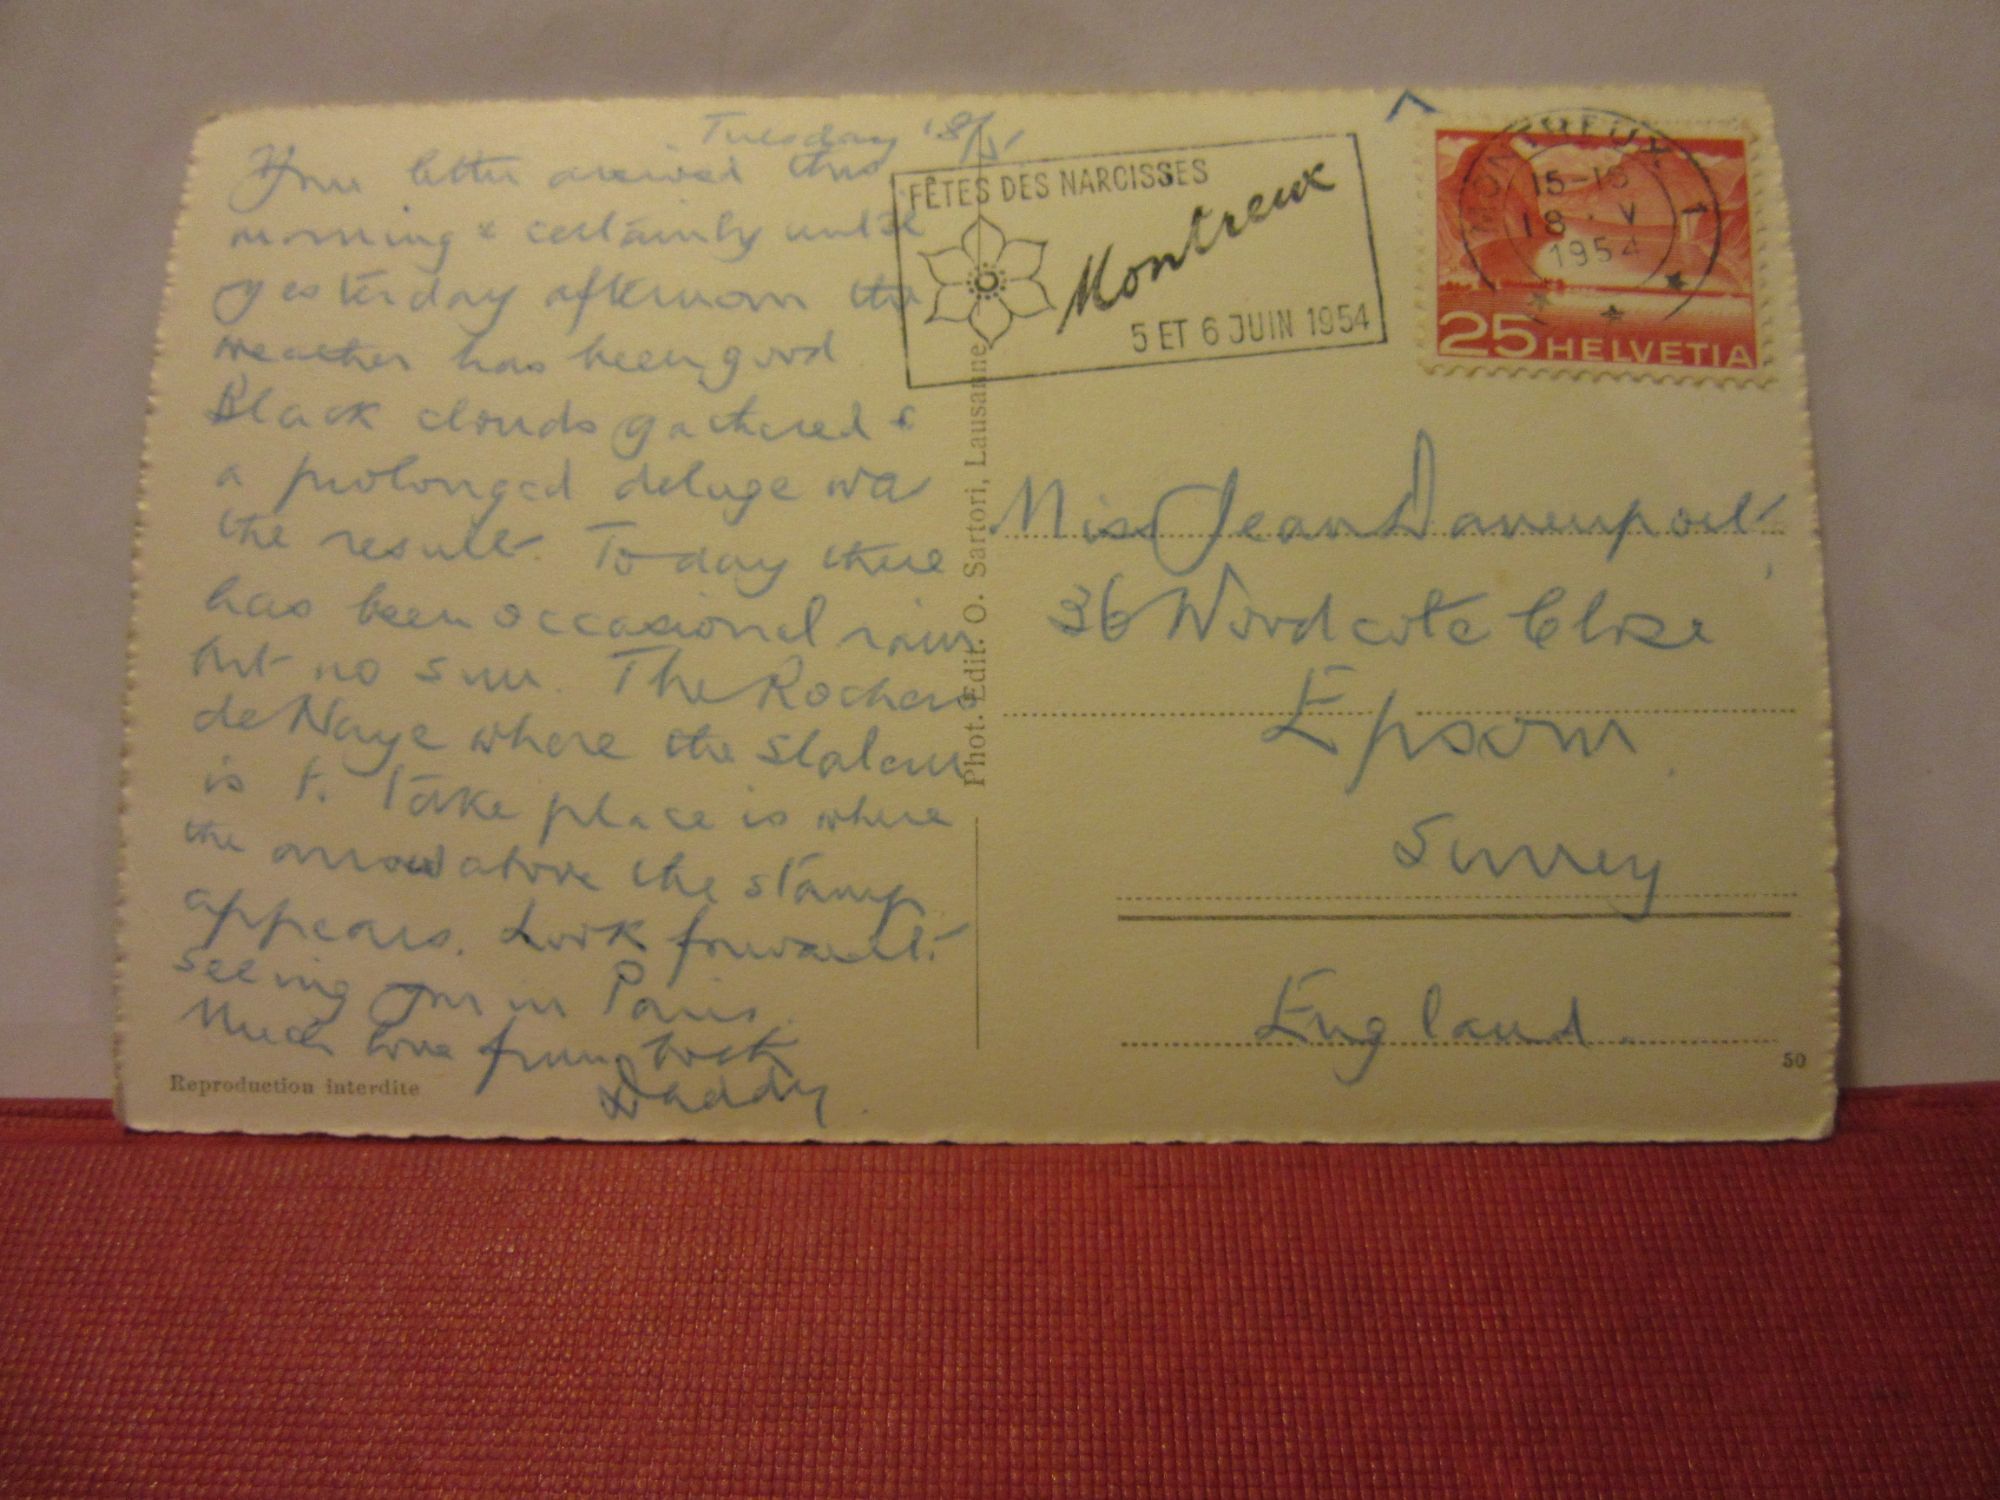 Tuesday 18/5
Your letter arrived this
morning & certainly until
yesterday afternoon the
weather has been good
Black clouds gathered &
a prolonged deluge was
the result. Today there
has been occasional rain
but no sun. The Rochers
de Naye where the slalom
is t. take place is where
the arrow above the stamp
appears. Look forward t.
seeing you in Paris.
Much love from both
Daddy.
Reproduction interdite
Phot. Edit. O. Sartori, Lausanne
FÊTES DES NARCISSES
Montreux
5 ET 6 JUIN 1954
MONTREUX 1
15-16
18·V
1954
25 HELVETIA
Miss Jean Davenport,
36 Woodcote Close
Epsom
Surrey
England.
50